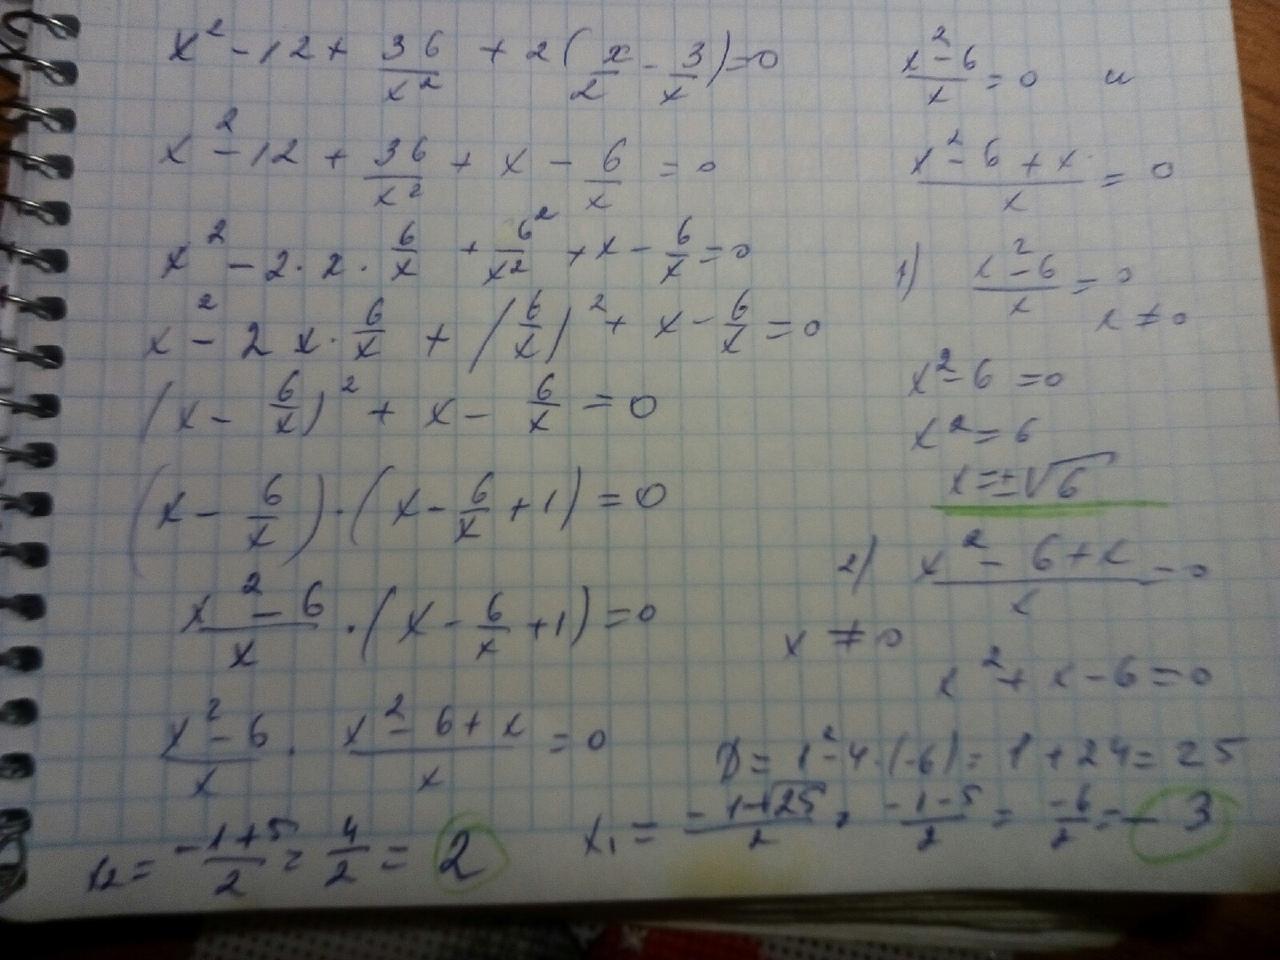 x² - 12 + 36/x² + 2(x/2 - 3/x) = 0
x² - 12 + 36/x² + x - 6/x = 0
x² - 2·x·6/x + 6²/x² + x - 6/x = 0
x² - 2x·6/x + (6/x)² + x - 6/x = 0
(x - 6/x)² + x - 6/x = 0
(x - 6/x)·(x - 6/x + 1) = 0
x² - 6/x · (x - 6/x + 1) = 0
x² - 6/x · x² - 6 + x/x = 0
x2 = -1+5/2 = 4/2 = 2
x² - 6/x = 0 и
x² - 6 + x/x = 0
1) x² - 6/x = 0
x ≠ 0
x² - 6 = 0
x² = 6
x = ±√6
2) x² - 6 + x/x = 0
x ≠ 0
x² + x - 6 = 0
D = 1² - 4·(-6) = 1 + 24 = 25
x₁ = -1-√25/2 = -1-5/2 = -6/2 = -3